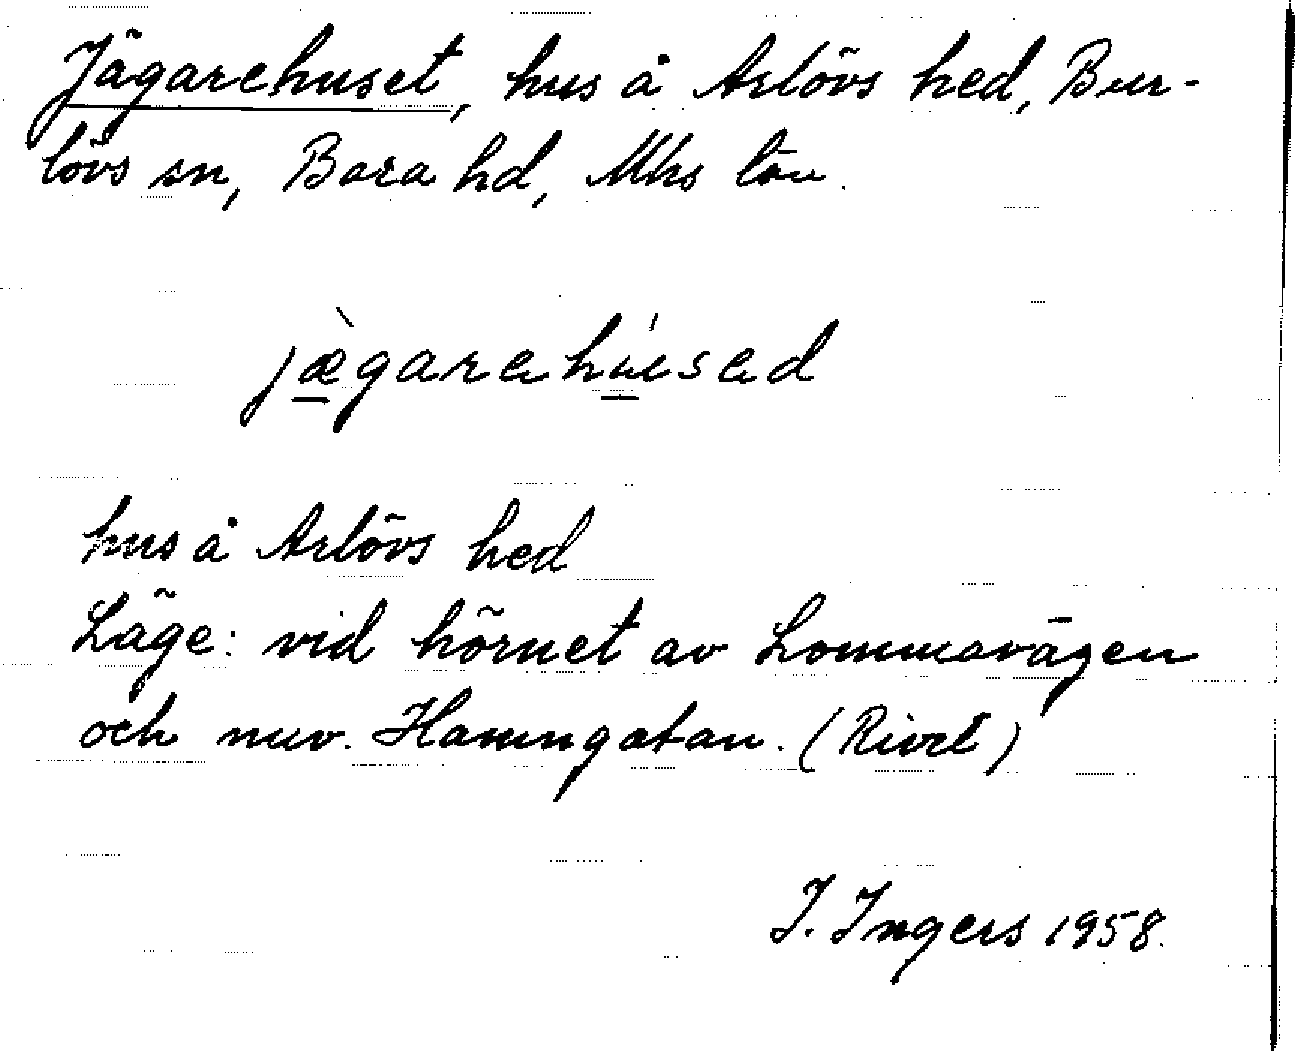 Jägarehuset, hus å Arlövs hed, Bur-
lövs sn, Bara hd, Mhs län.
jæ̀garehúsed
hus å Arlövs hed
Läge: vid hörnet av Lommavägen
och nuv. Hamngatan. (Rivet)
I. Ingers 1958.